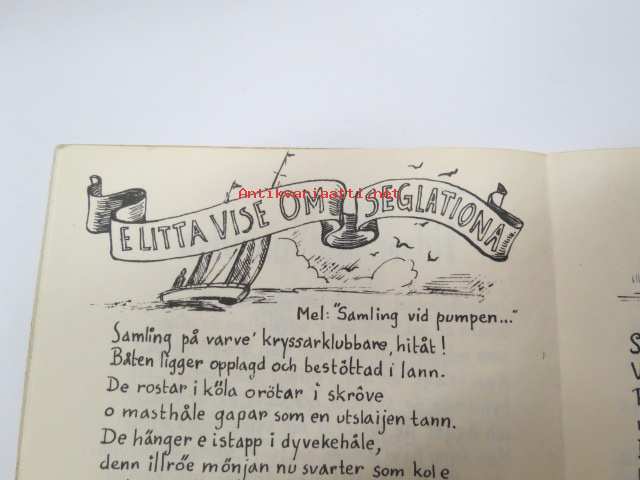 E LITTA VISE OM SEGLATIONA
Antikvariaatti.net
Mel: "Samling vid pumpen..."
Samling på varve' kryssarklubbare, hitåt!
Båten ligger opplagd och bestöttad i lann.
De rostar i köla o rötar i skrôve
o masthåle gapar som en utslaijen tann.
De hänger e istapp i dyvekehåle,
denn illröe mönjan nu svarter som kol e
S
V